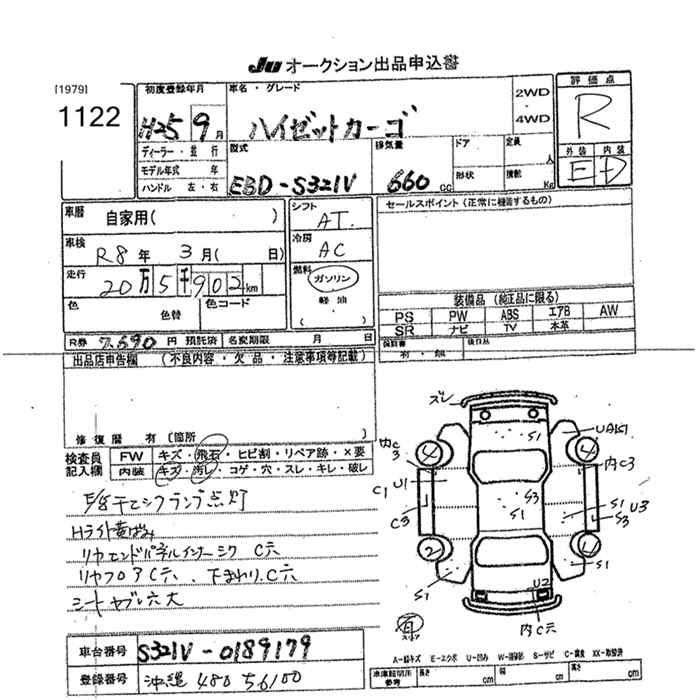 JU オークション出品申込書
[1979]
1122
初度登録年月
H25 9月
車名・グレード
ハイゼットカーゴ
2WD
・
4WD
評価点
R
ディーラー・並行
モデル年式 年
ハンドル 左・右
型式
EBD-S321V
排気量
660 cc
ドア
形状
定員
人
積載
Kg
外装 内装
E D
車歴
自家用( )
シフト
AT
セールスポイント (正常に機能するもの)
車検
R8年 3月( 日)
冷房
AC
走行
20万5千902km
燃料
ガソリン
軽油
( )
色
色替
色コード
装備品 (純正品に限る)
PS PW ABS エアB AW
SR ナビ TV 本革
R券 7,690円 預託済 名変期限 月 日
保証書
後作品
出品店申告欄 (不良内容・欠品・注意事項等記載)
修復歴 有 〔箇所 〕
検査員
記入欄
FW キズ・飛石・ヒビ割・リペア跡・X要
内装 キズ・汚レ・コゲ・穴・スレ・キレ・破レ
Hライト黄ばみ
リヤエンドパネルインナーシワ C穴
リヤフロアC穴、下まわりC穴
シートヤブレ穴大
ズレ
S1
UA1S1
内C3
4
4
内C3
U1
C1
C3
S3
S1
S1
U3
S3
2
4
S1
S1
U2
内C穴
有
車台番号
S321V-0189179
登録番号
沖縄 480 56100
A-線キズ E-エクボ U-凹み S-サビ C-腐食 XX-取替済
車庫証明用
参考
長さ cm 幅 cm 高さ cm